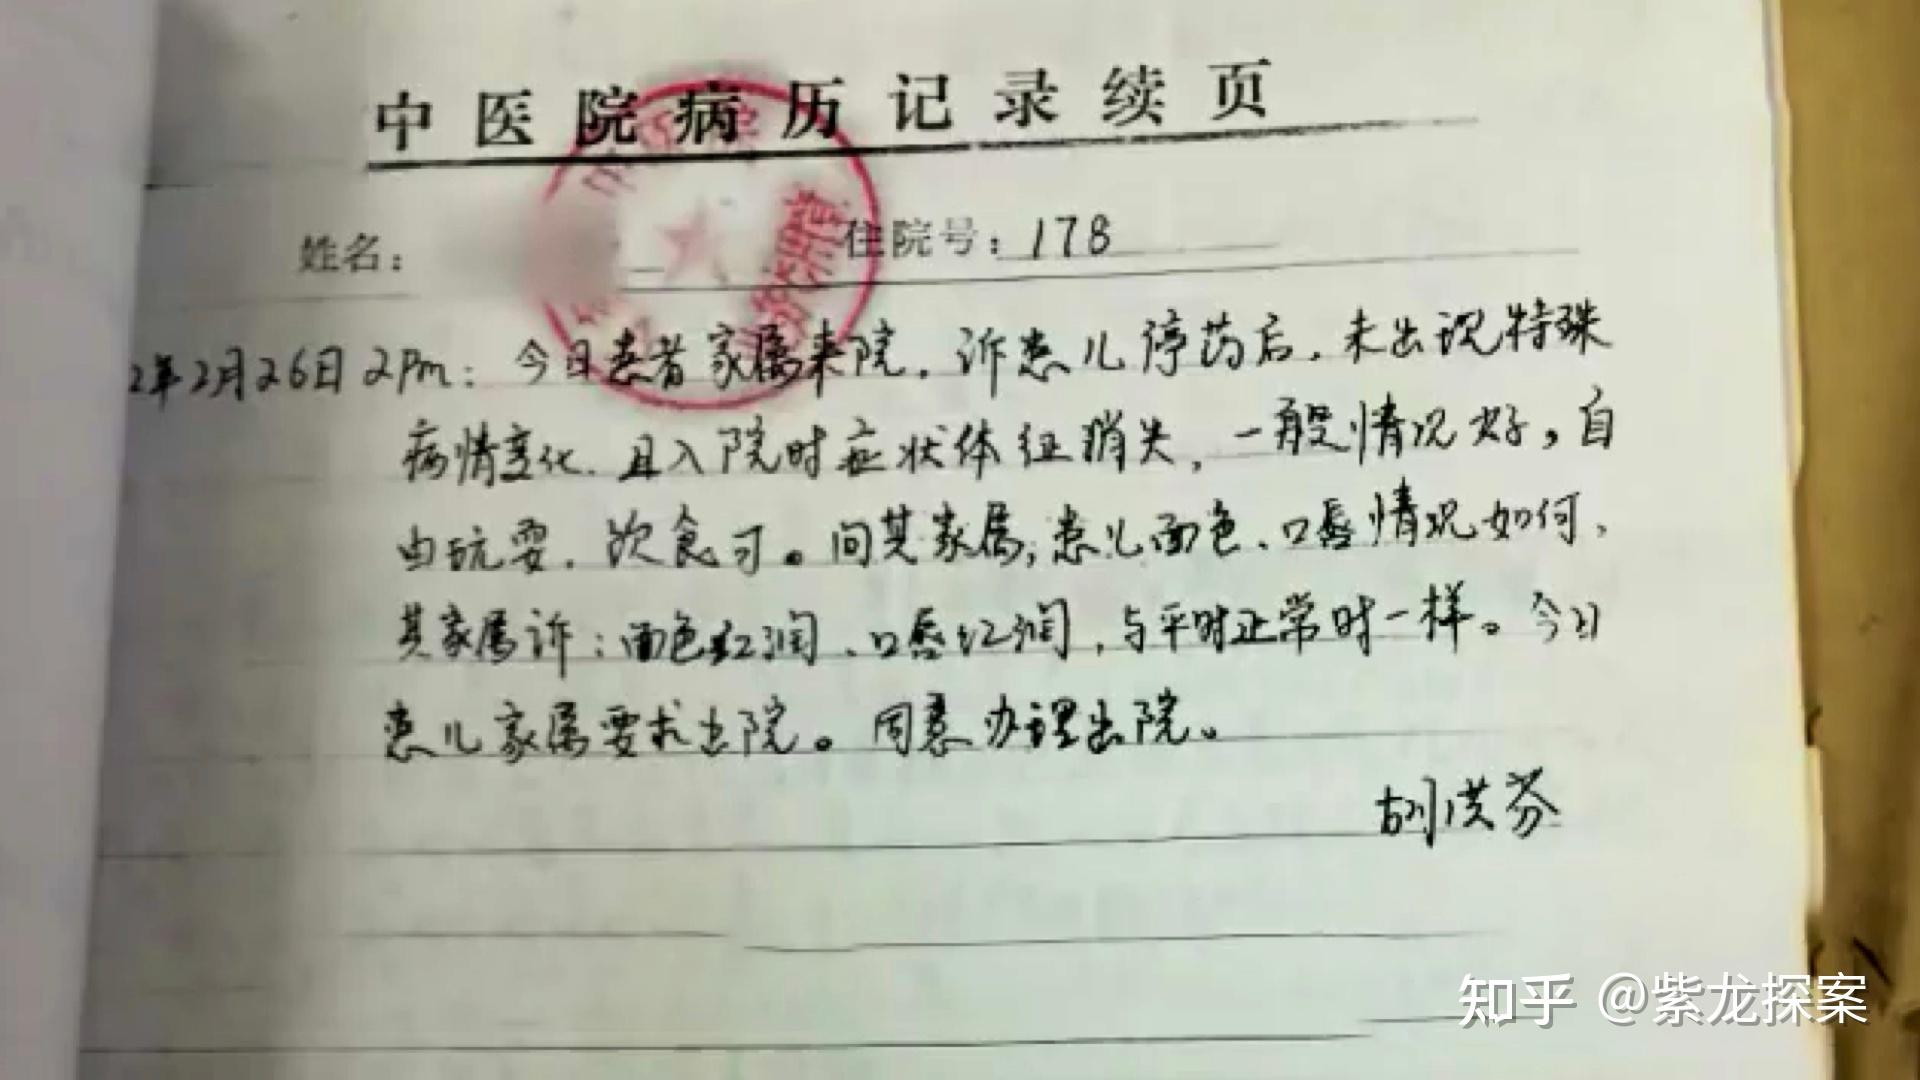 中医院病历记录续页
姓名： 住院号：178
2年2月26日2pm：今日患者家属来院，诉患儿停药后，未出现特殊
病情变化，且入院时症状体征消失，一般情况好，自
由玩耍，饮食可。问其家属，患儿面色、口唇情况如何，
其家属诉：面色红润、口唇红润，与平时正常时一样。今日
患儿家属要求出院。同意办理出院。
胡洪芬
知乎 @紫龙探案